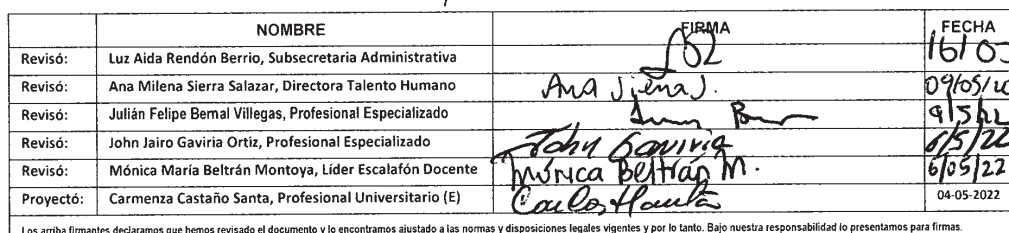 NOMBRE FIRMA FECHA
Revisó: Luz Aida Rendón Berrio, Subsecretaria Administrativa 16/05
Revisó: Ana Milena Sierra Salazar, Directora Talento Humano Ana Sierra S. 09/05/
Revisó: Julián Felipe Bernal Villegas, Profesional Especializado 9/5/22
Revisó: John Jairo Gaviria Ortiz, Profesional Especializado John Gaviria 6/5/22
Revisó: Mónica María Beltrán Montoya, Líder Escalafón Docente Mónica Beltrán M. 6/05/22
Proyectó: Carmenza Castaño Santa, Profesional Universitario (E) 04-05-2022
Los arriba firmantes declaramos que hemos revisado el documento y lo encontramos ajustado a las normas y disposiciones legales vigentes y por lo tanto. Bajo nuestra responsabilidad lo presentamos para firmas.